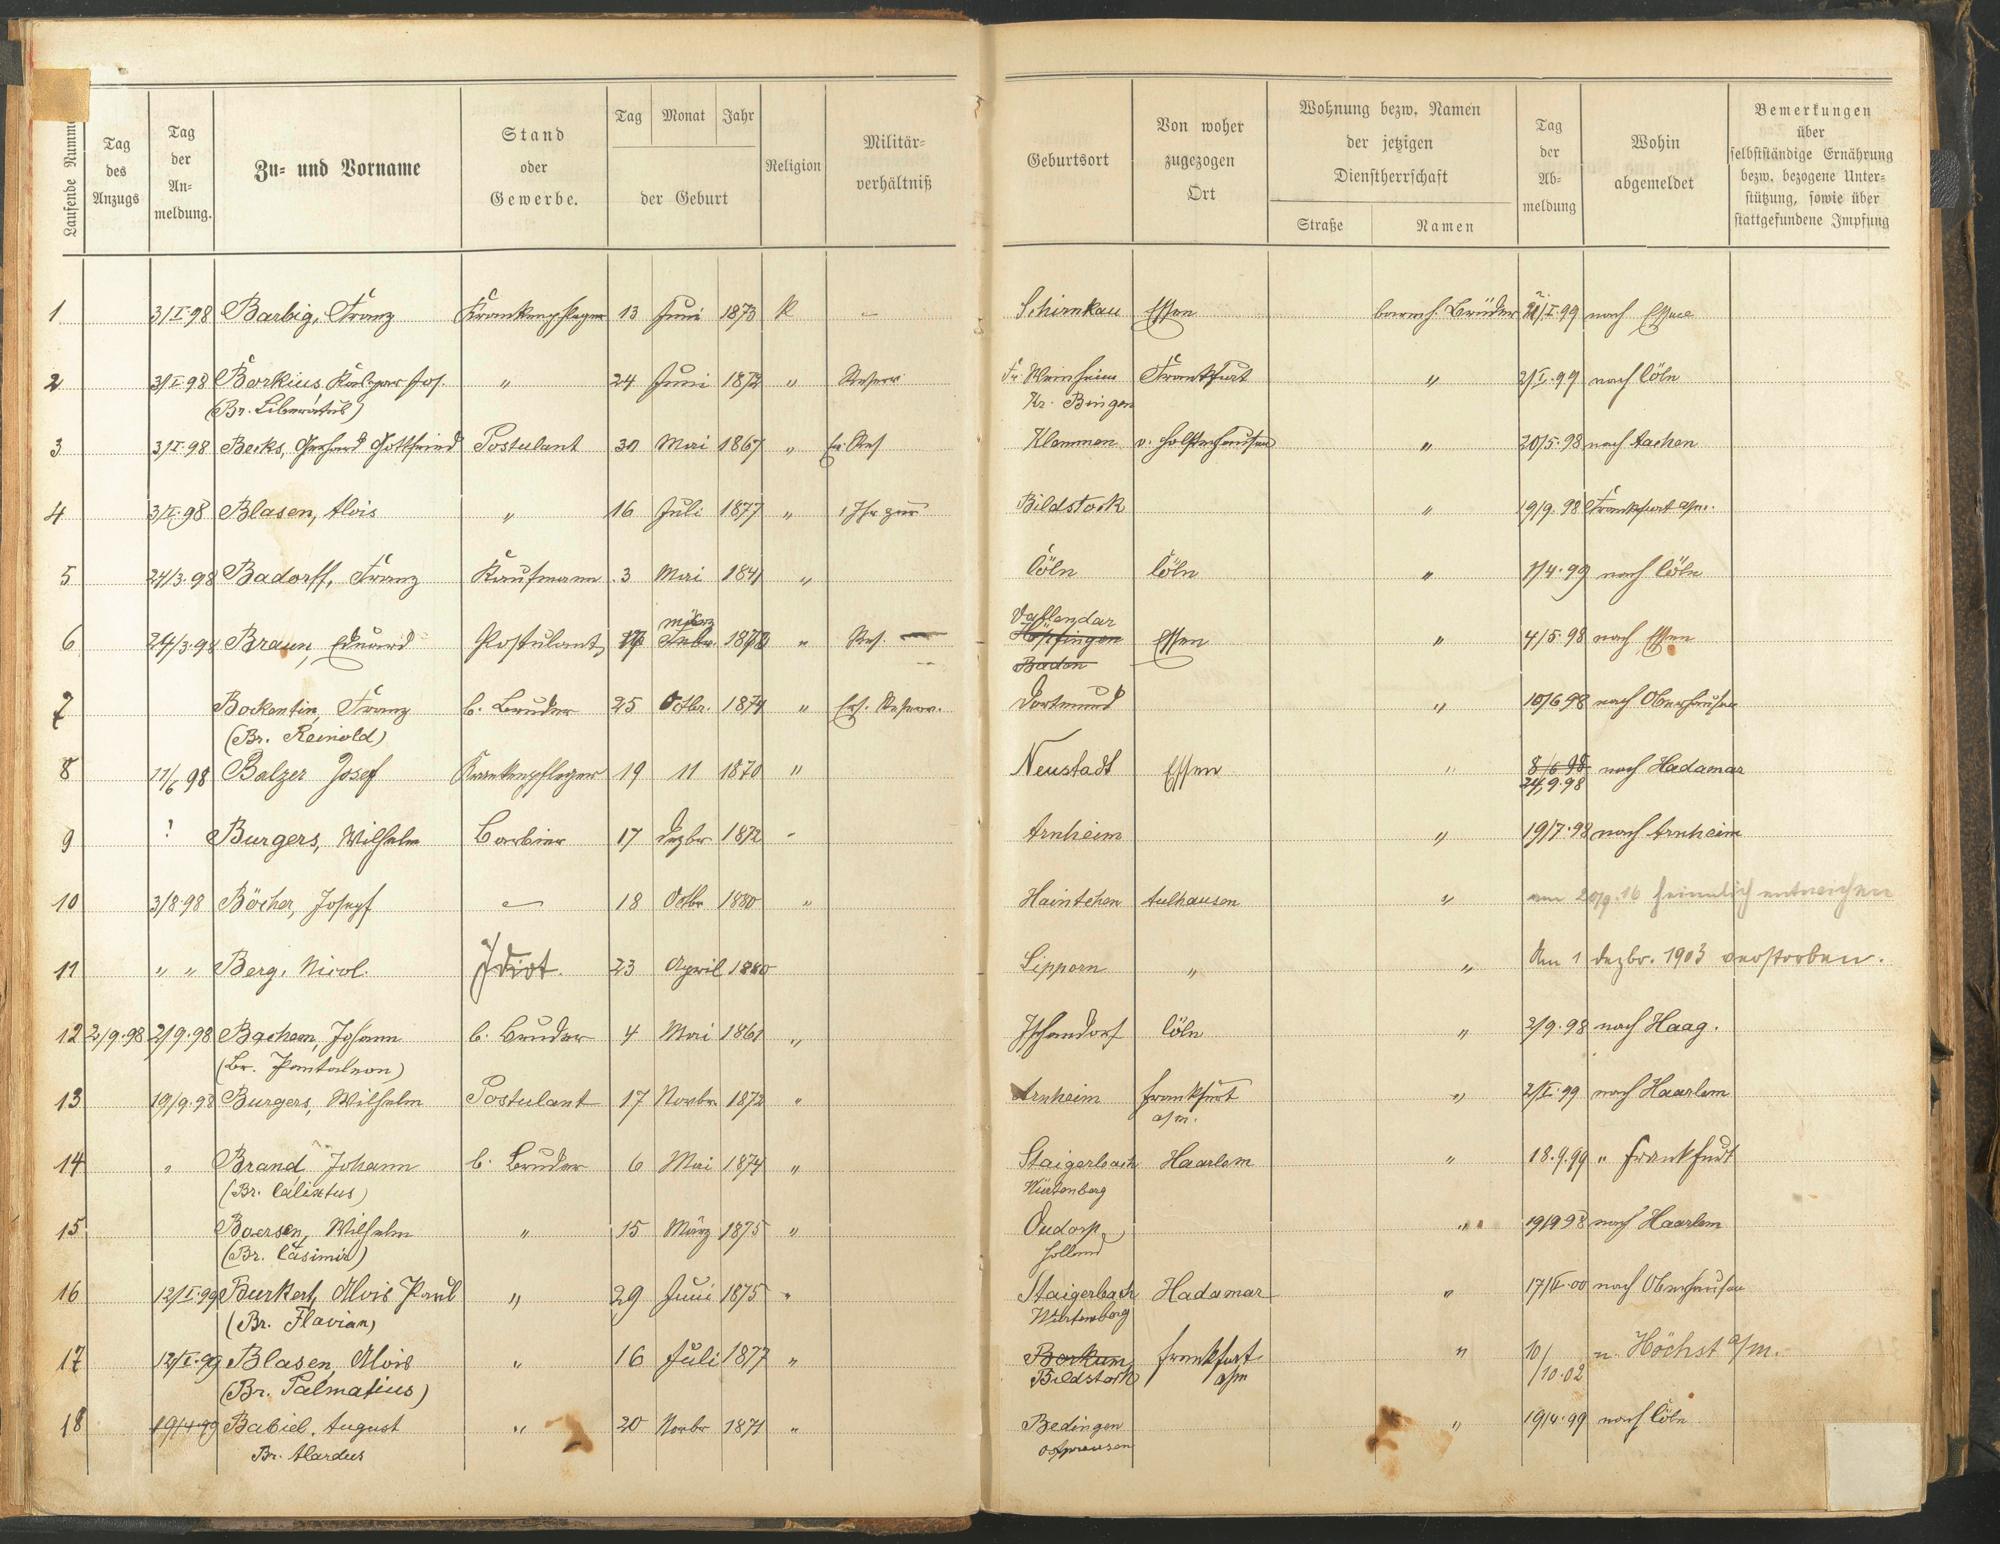 Laufende Numme
Tag des Anzugs
Tag der An- meldung.
Zu- und Vorname
Stand oder Gewerbe.
Tag Monat Jahr
der Geburt
Religion
Militär- verhältniß
Geburtsort
Von woher zugezogen Ort
Wohnung bezw. Namen der jetzigen Dienstherrschaft
Straße Namen
Tag der Ab- meldung
Wohin abgemeldet
Bemerkungen über selbstständige Ernährung bezw. bezogene Unter- stützung, sowie über stattgefundene Impfung
1 3/I.98 Barbig, Franz Krankenpfleger 13 Juni 1873 K – Schirnkau Essen barmh. Brüder /I.99 nach Essen
2 3/I.98 Borkius Jos. " 24 Juni 1872 " Reserv. Weinheim Frankfurt " 2/I.99 nach Cöln
(Br. Liberatus) Kr. Bingen
3 3/I.98 Becks, Gerhard Gottfried Postulant 30 Mai 1867 " Ers. Res Klemmen v. Holsterhausen " 20/5.98 nach Aachen
4 3/I.98 Blasen, Alois " 16 Juli 1877 " Bildstock " 19/9.98 Frankfurt a/m.
5 24/3.98 Badorff, Franz Kaufmann 3 Mai 1841 " Cöln Cöln " 1/4.99 nach Cöln
märz Vallendar
6 24/3.98 Braun, Eduard Postulant Febr. 1872 " Res. Essen " 4/5.98 nach Essen
Baden
7 Bockentin, Franz b. Bruder 25 Octbr. 1874 " Ers. Reserv. Dortmund " 10/6 98 nach Oberhausen
(Br. Reinold)
8 11/6 98 Balzer Josef Krankenpfleger 19 11 1870 " Neustadt Essen " 8/6 98 nach Hadamar
24/9.98
9 ? Burgers, Wilhelm Barbier 17 Dezbr 1872 - Arnheim " 19/7.98 nach Arnheim
10 3/8.98 Böcher, Josepf – 18 Octbr 1880 " Haintchen Aulhausen " am 20/9.16 heimlich entwichen
11 " " Berg, Nicol. Idiot. 23 April 1880 Lipporn " " Am 1 Dezbr. 1903 verstorben.
12 2/9.98 2/9.98 Bachem, Johann b. Bruder 4 Mai 1861 " Cöln " 2/9.98 nach Haag.
(Br. Pantaleon)
13 19/9.98 Burgers, Wilhelm Postulant 17 Novbr. 1872 " Arnheim Frankfurt " 2/I.99 nach Haarlem
a/m.
14 " Brand, Johann b. Bruder 6 Mai 1874 " Staigerbach Haarlem " 18.9.99 " Frankfurt
(Br. Calixtus) Würtenberg
15 Boersen, Wilhelm " 15 März 1875 " Oudorp " 19/9 98 nach Haarlem
(Br. Casimir) Holland
16 12/I.99 Burkert, Alois Paul " 29 Juni 1875 " Staigerbach Hadamar " 17/II.00 nach Oberhausen
(Br. Flavian) Würtemberg
17 12/I.99 Blasen, Alois " 16 Juli 1877 " Borkum Frankfurt " 10/ n. Höchst a/m.
(Br. Palmatius) Bildstock a/m /10.02
18 19/4.99 Babiel, August " 20 Novbr 1871 " Bedingen " 19/4.99 nach Cöln
Br. Alardus Ostpreusen